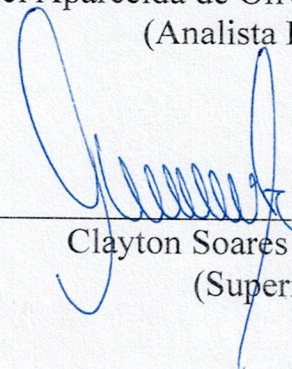 Aparecida de
(Analista
Clayton Soares
(Super